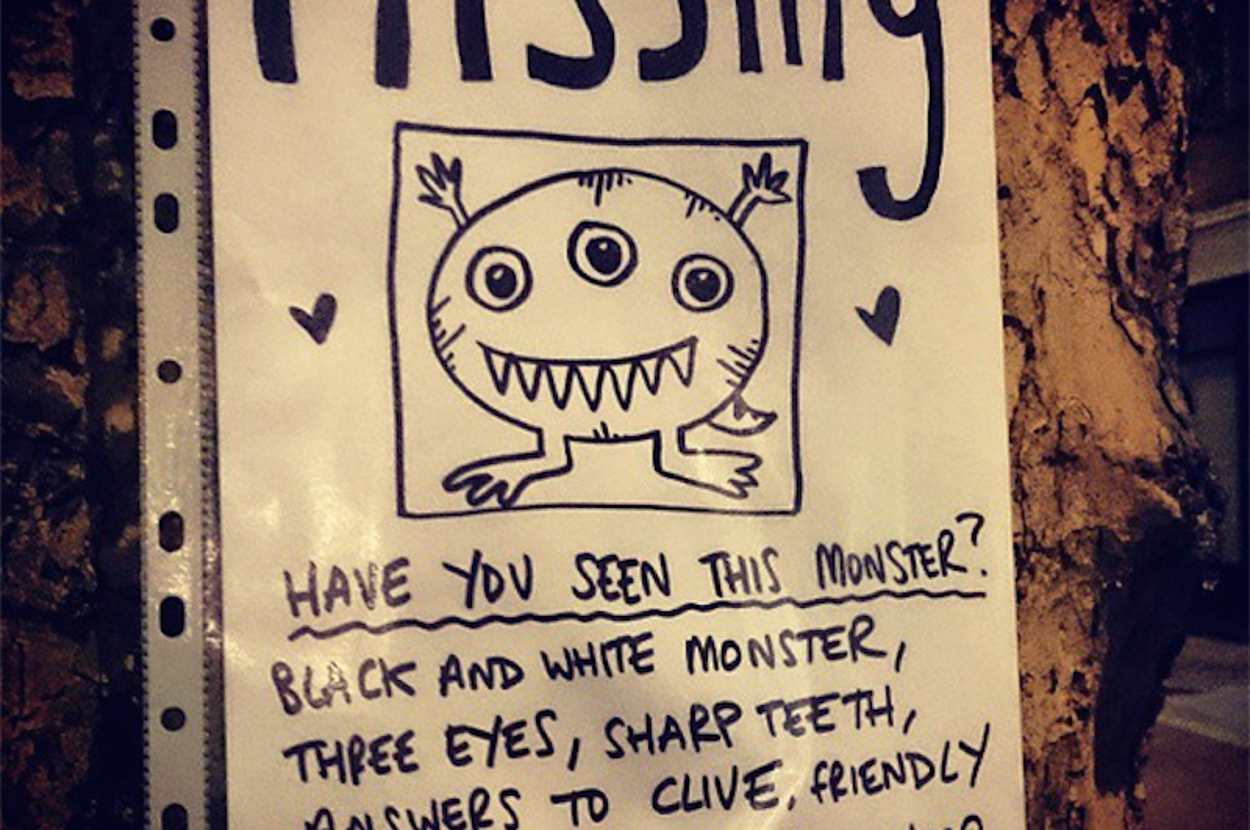 Missing
HAVE YOU SEEN THIS MONSTER?
BLACK AND WHITE MONSTER,
THREE EYES, SHARP TEETH,
ANSWERS TO CLIVE, FRIENDLY